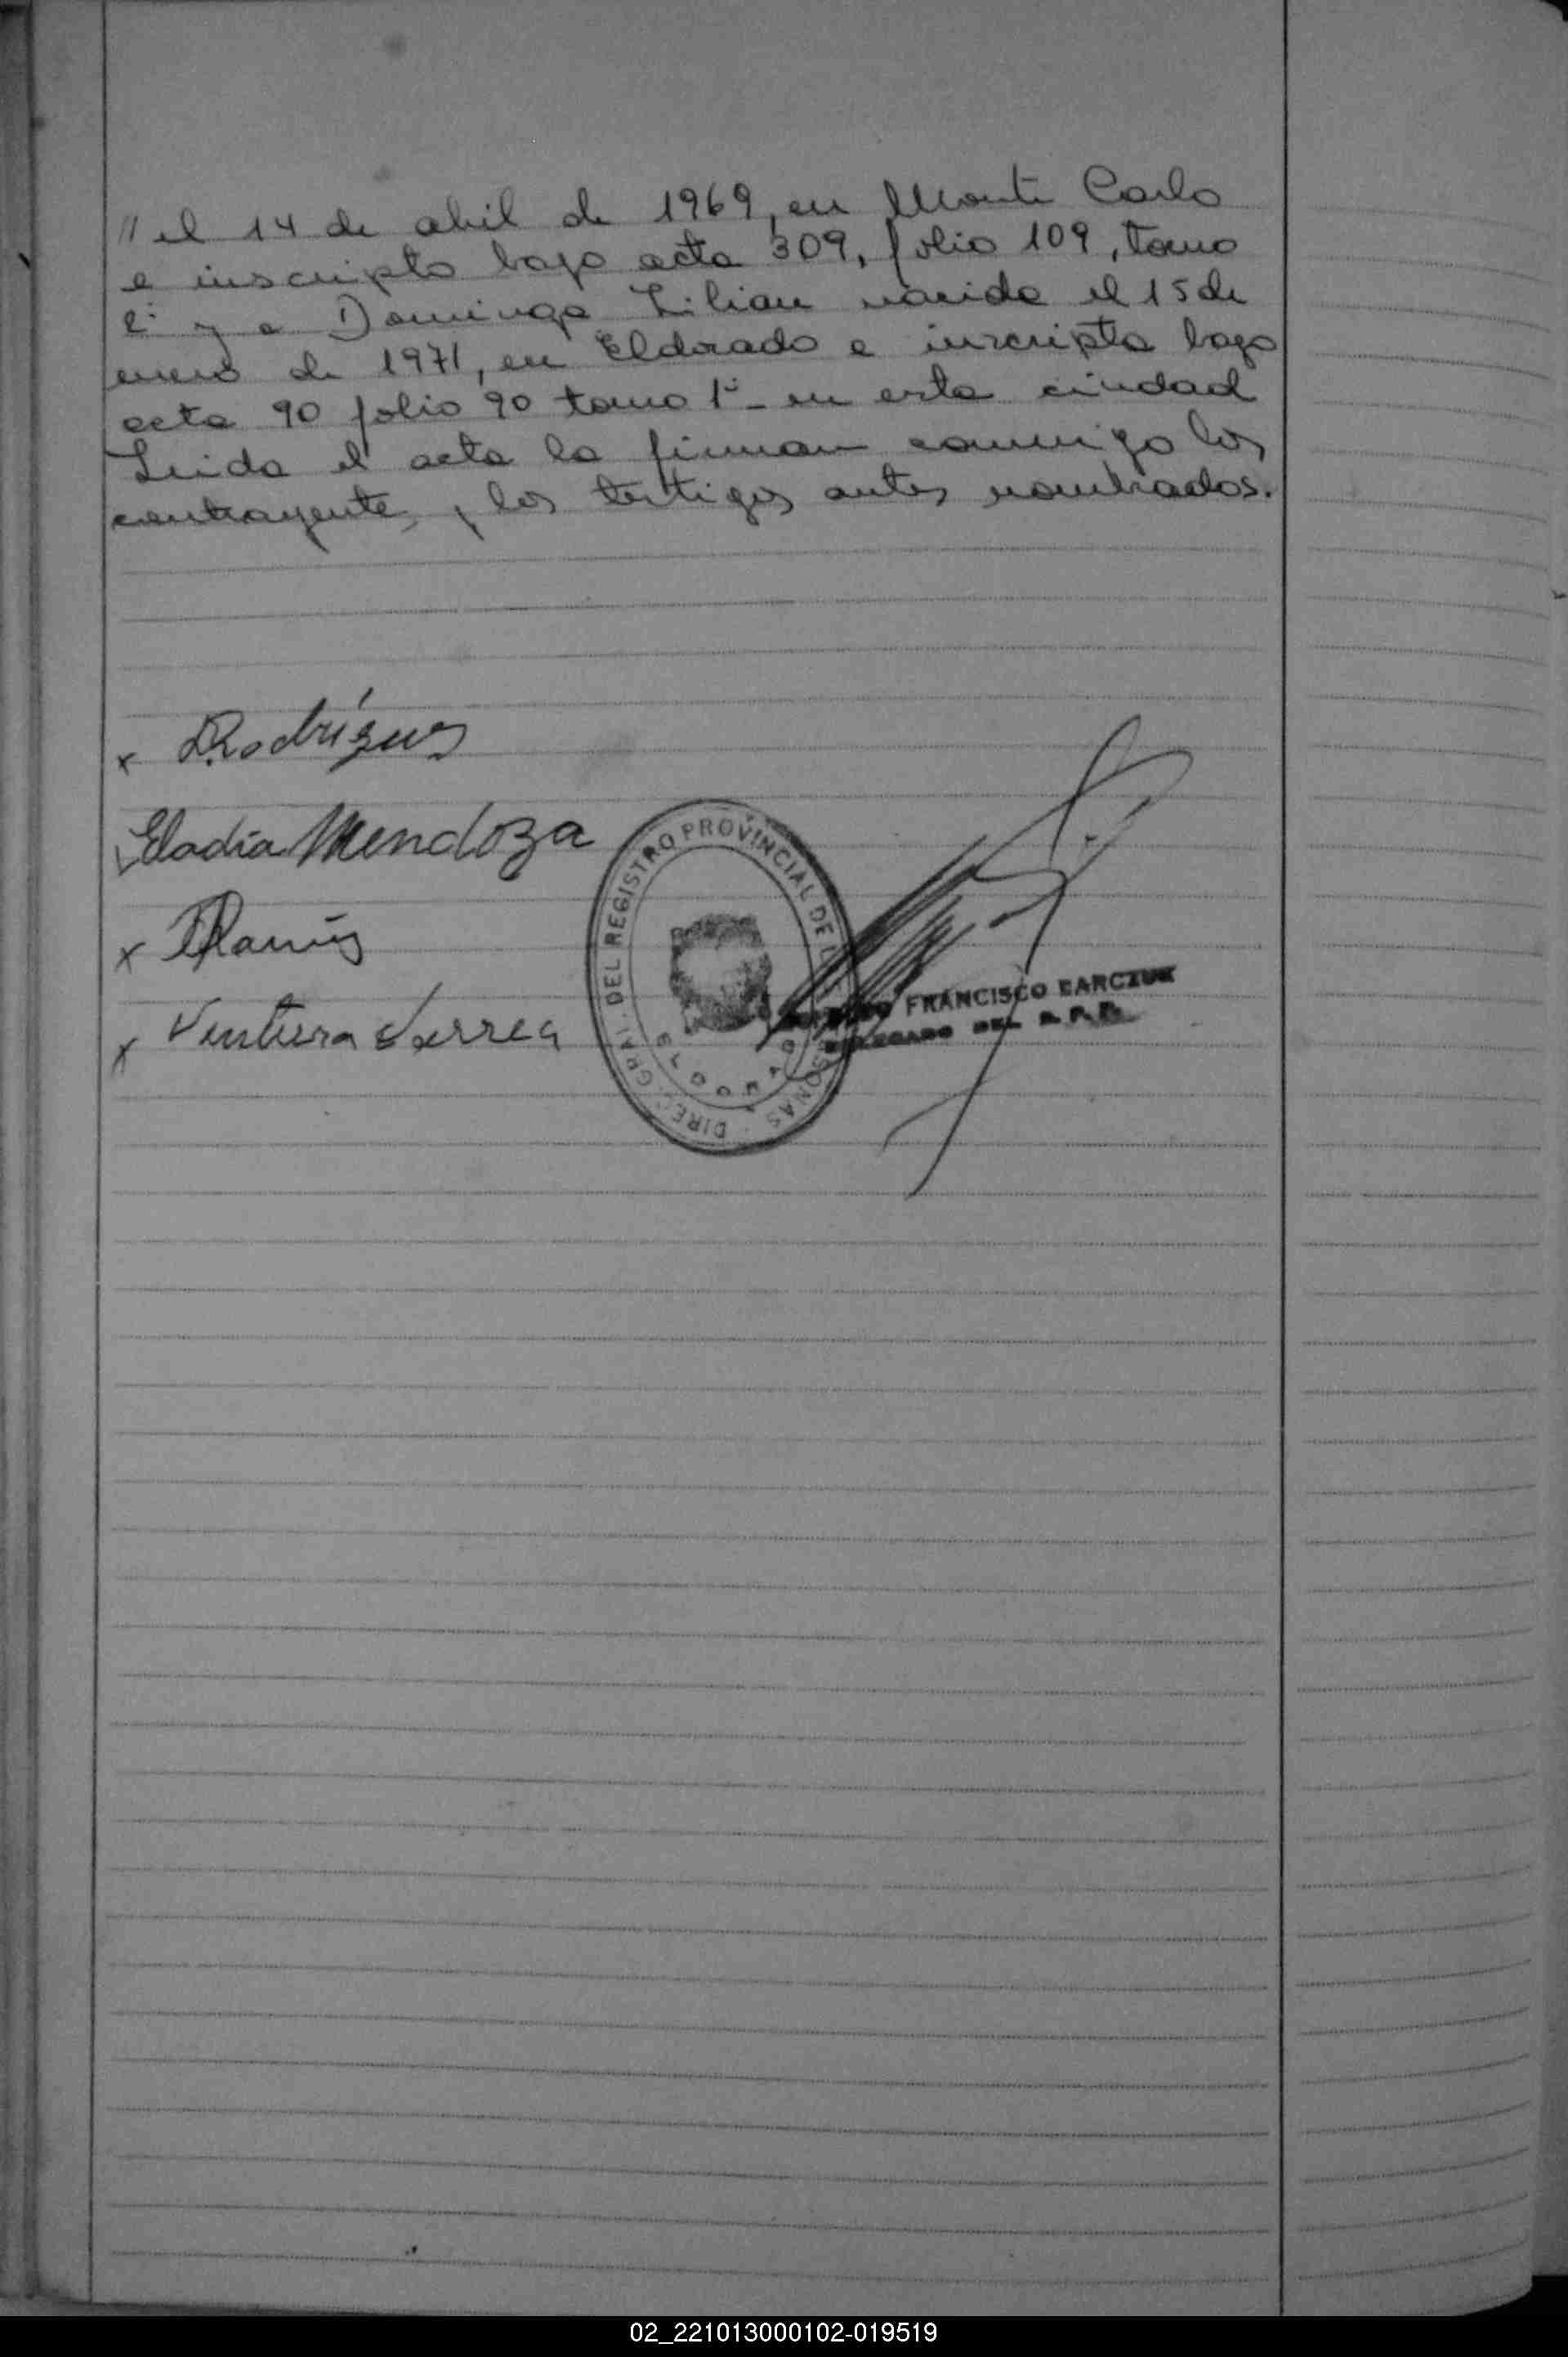 // el 14 de abril de 1969, en Monte Carlo
e inscripto bajo acta 309, folio 109, tomo
2º y a Dominga Lilian nacida el 15 de
enero de 1971, en Eldorado e inscripta bajo
acta 90 folio 90 tomo 1º - en esta ciudad
Leida el acta la firman conmigo los
contrayentes, los testigos antes nombrados.
x Rodríguez
Eladia Mendoza
x
x Ventura
DIREC. GRAL. DEL REGISTRO PROVINCIAL DE L ONAS
ELDORADO
FRANCISCO
DELEGADO DEL R. P. P.
02_221013000102-019519